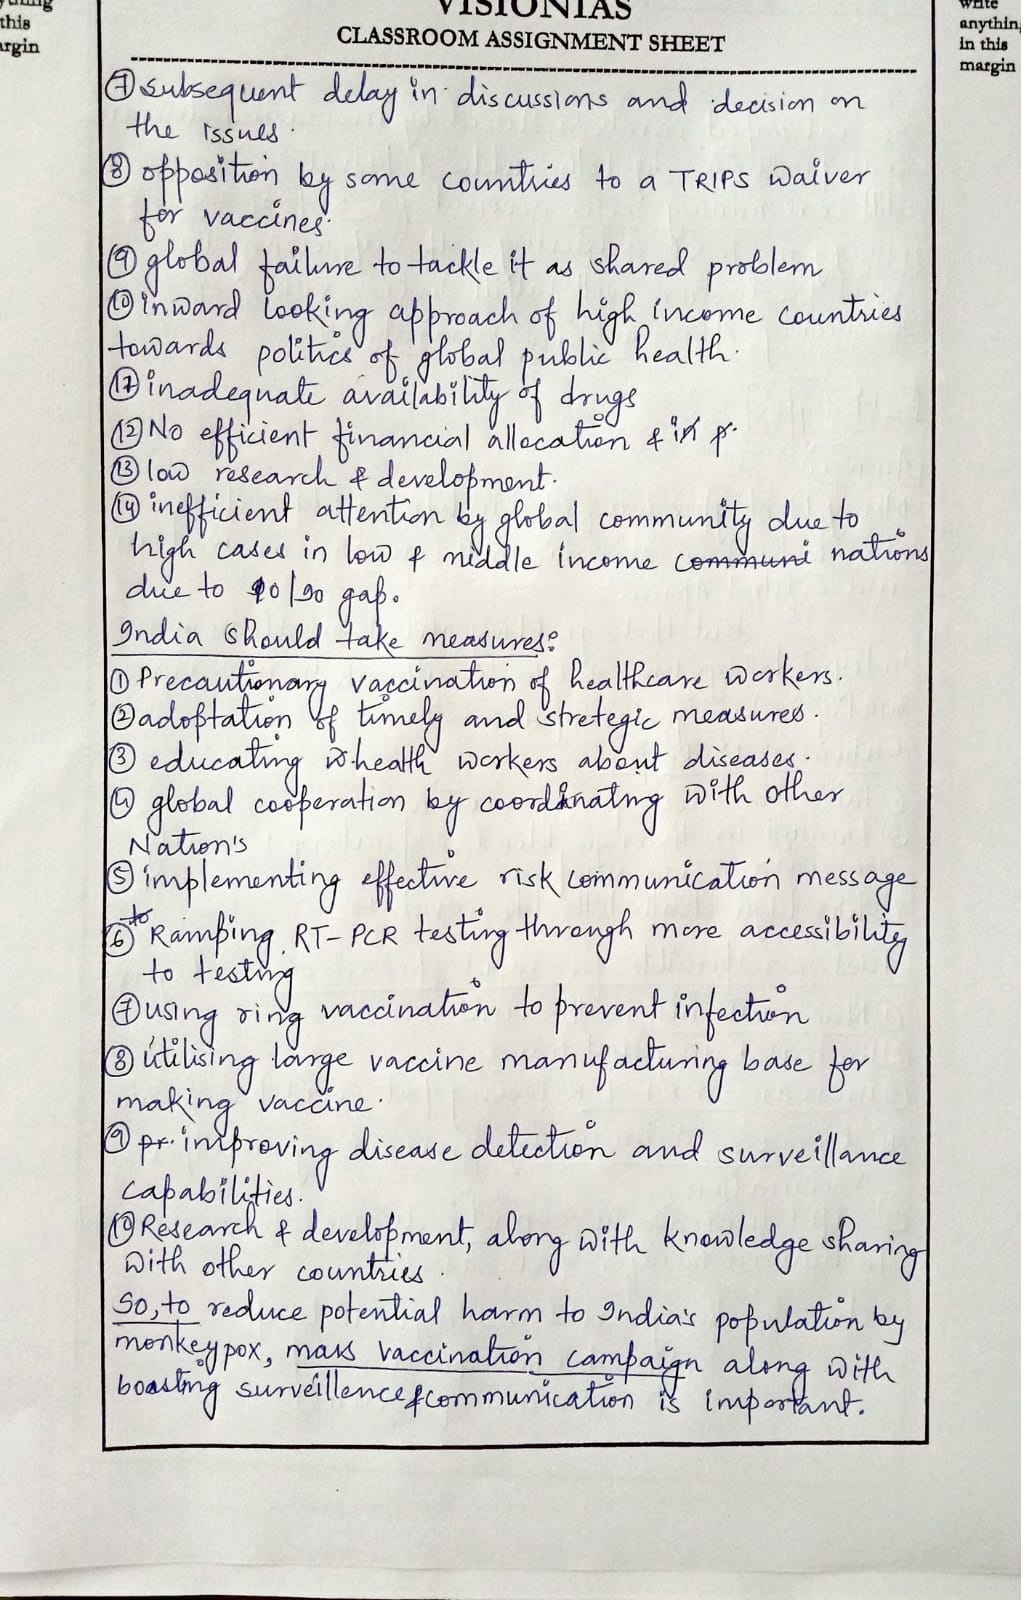 this
margin
VISIONIAS
CLASSROOM ASSIGNMENT SHEET
write
anything
in this
margin
⑦ subsequent delay in discussions and decision on
the issues.
⑧ opposition by some countries to a TRIPS waiver
for vaccines.
⑨ global failure to tackle it as shared problem
⑩ inward looking approach of high income countries
towards politics of global public health.
⑪ inadequate availability of drugs
⑫ No efficient financial allocation &
⑬ low research & development.
⑭ inefficient attention by global community due to
high cases in low & middle income communi nations
due to 10/90 gap.
India should take measures:
① Precautionary vaccination of healthcare workers.
② adoptation of timely and stretegic measures.
③ educating health workers about diseases.
④ global cooperation by coordinating with other
Nation's
⑤ implementing effective risk communication message
⑥ to Ramping RT-PCR testing through more accessibility
to testing
⑦ using ring vaccination to prevent infection
⑧ utilising large vaccine manufacturing base for
making vaccine.
⑨ pr. improving disease detection and surveillance
capabilities.
⑩ Research & development, along with knowledge sharing
with other countries.
So, to reduce potential harm to India's population by
monkeypox, mass vaccination campaign along with
boasting surveillence & communication is important.